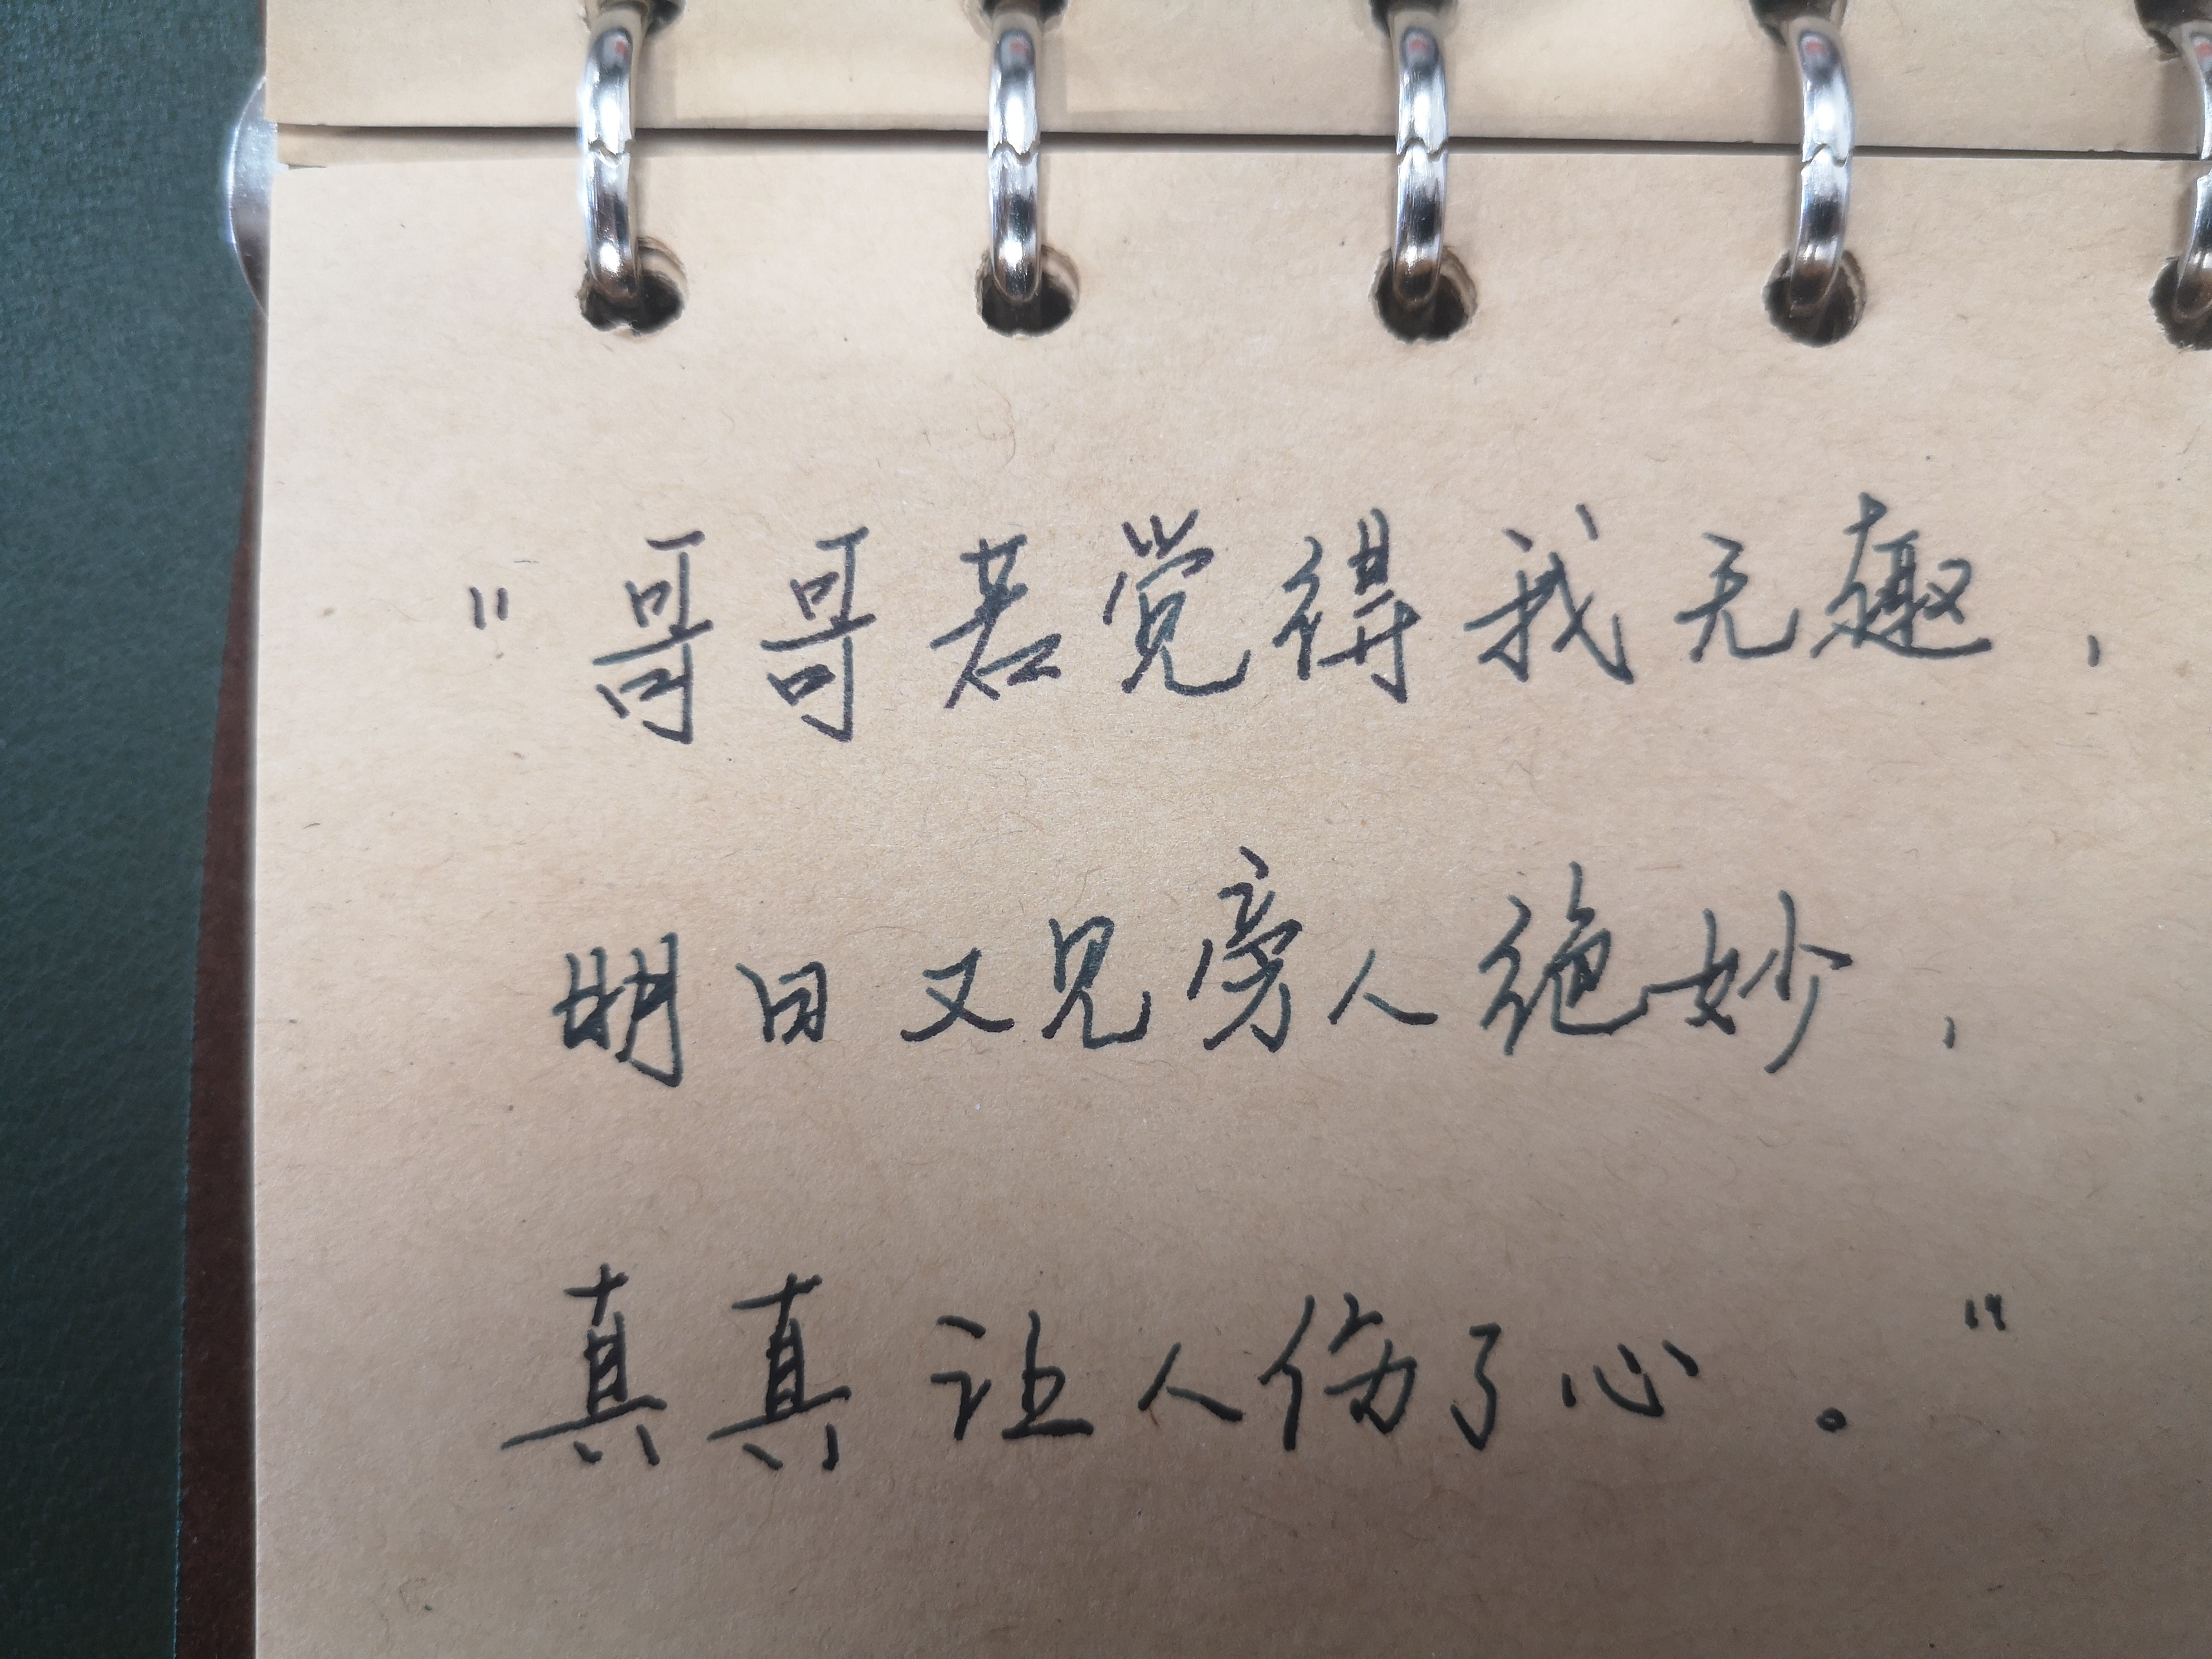 "哥哥若觉得我无趣，
明日又见旁人绝妙，
真真让人伤了心。"